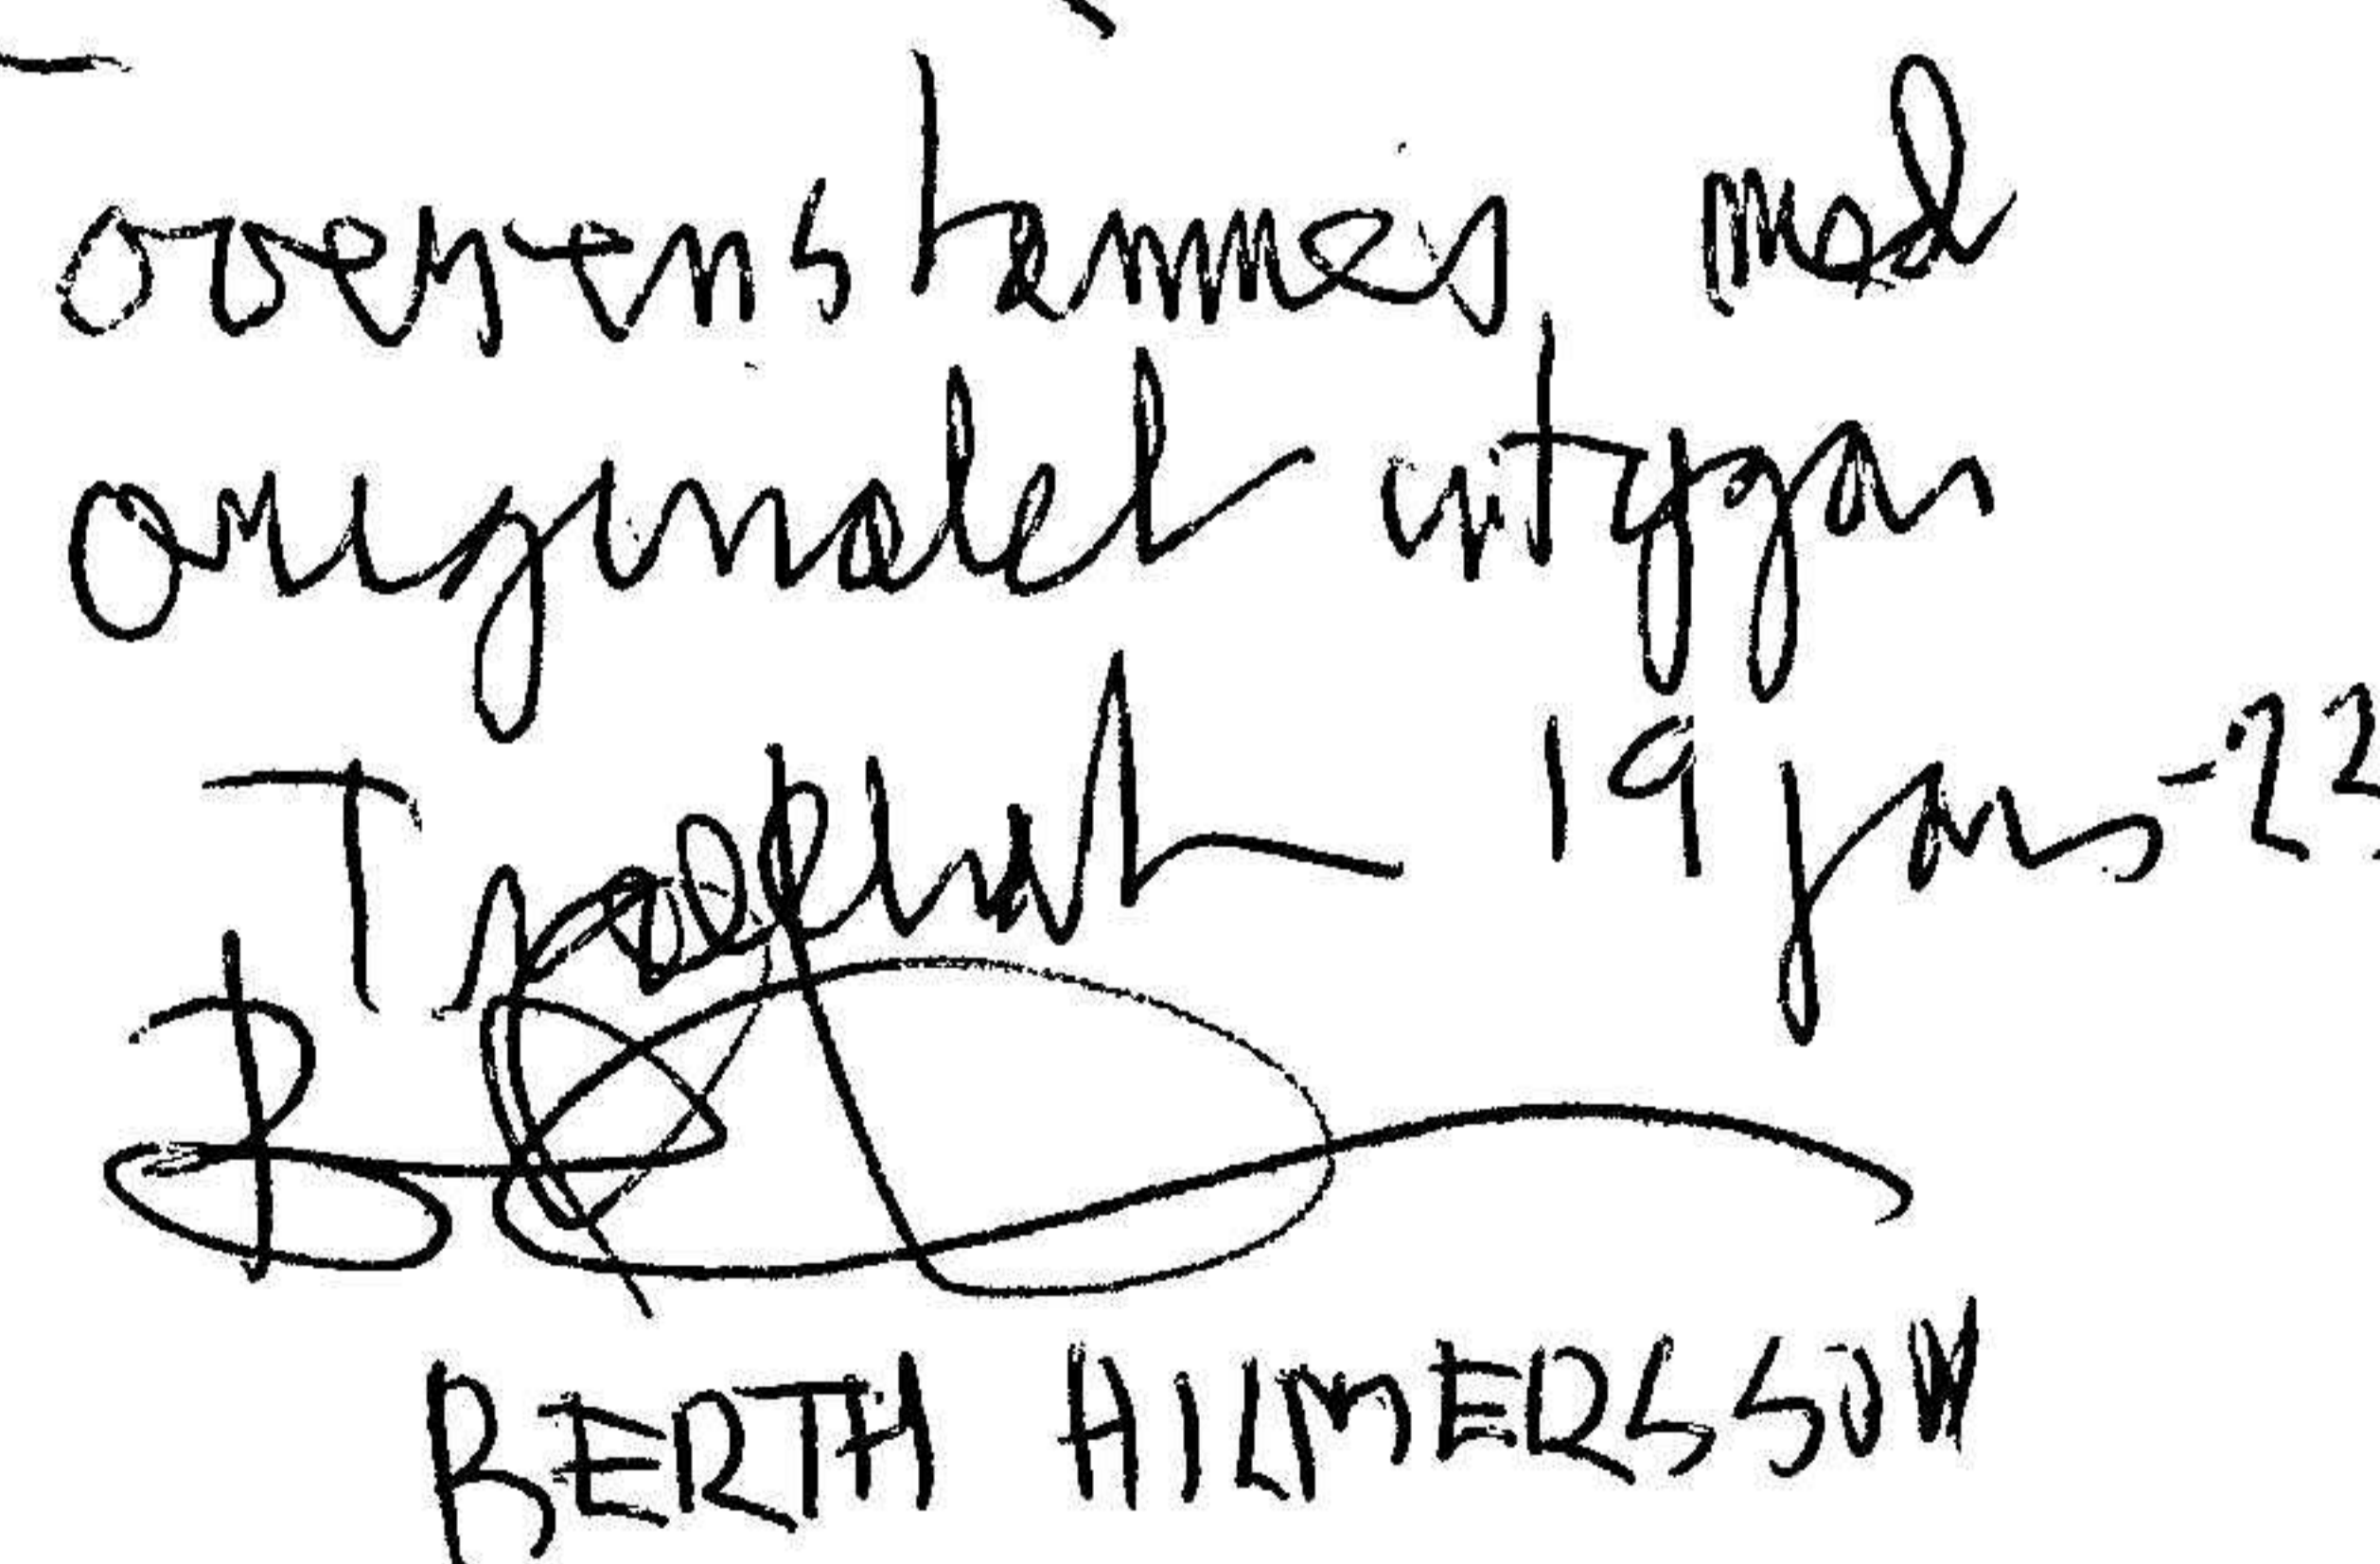 överenstämmer med
originalet intygar
19 jan -23
BERTH HILMERSSON